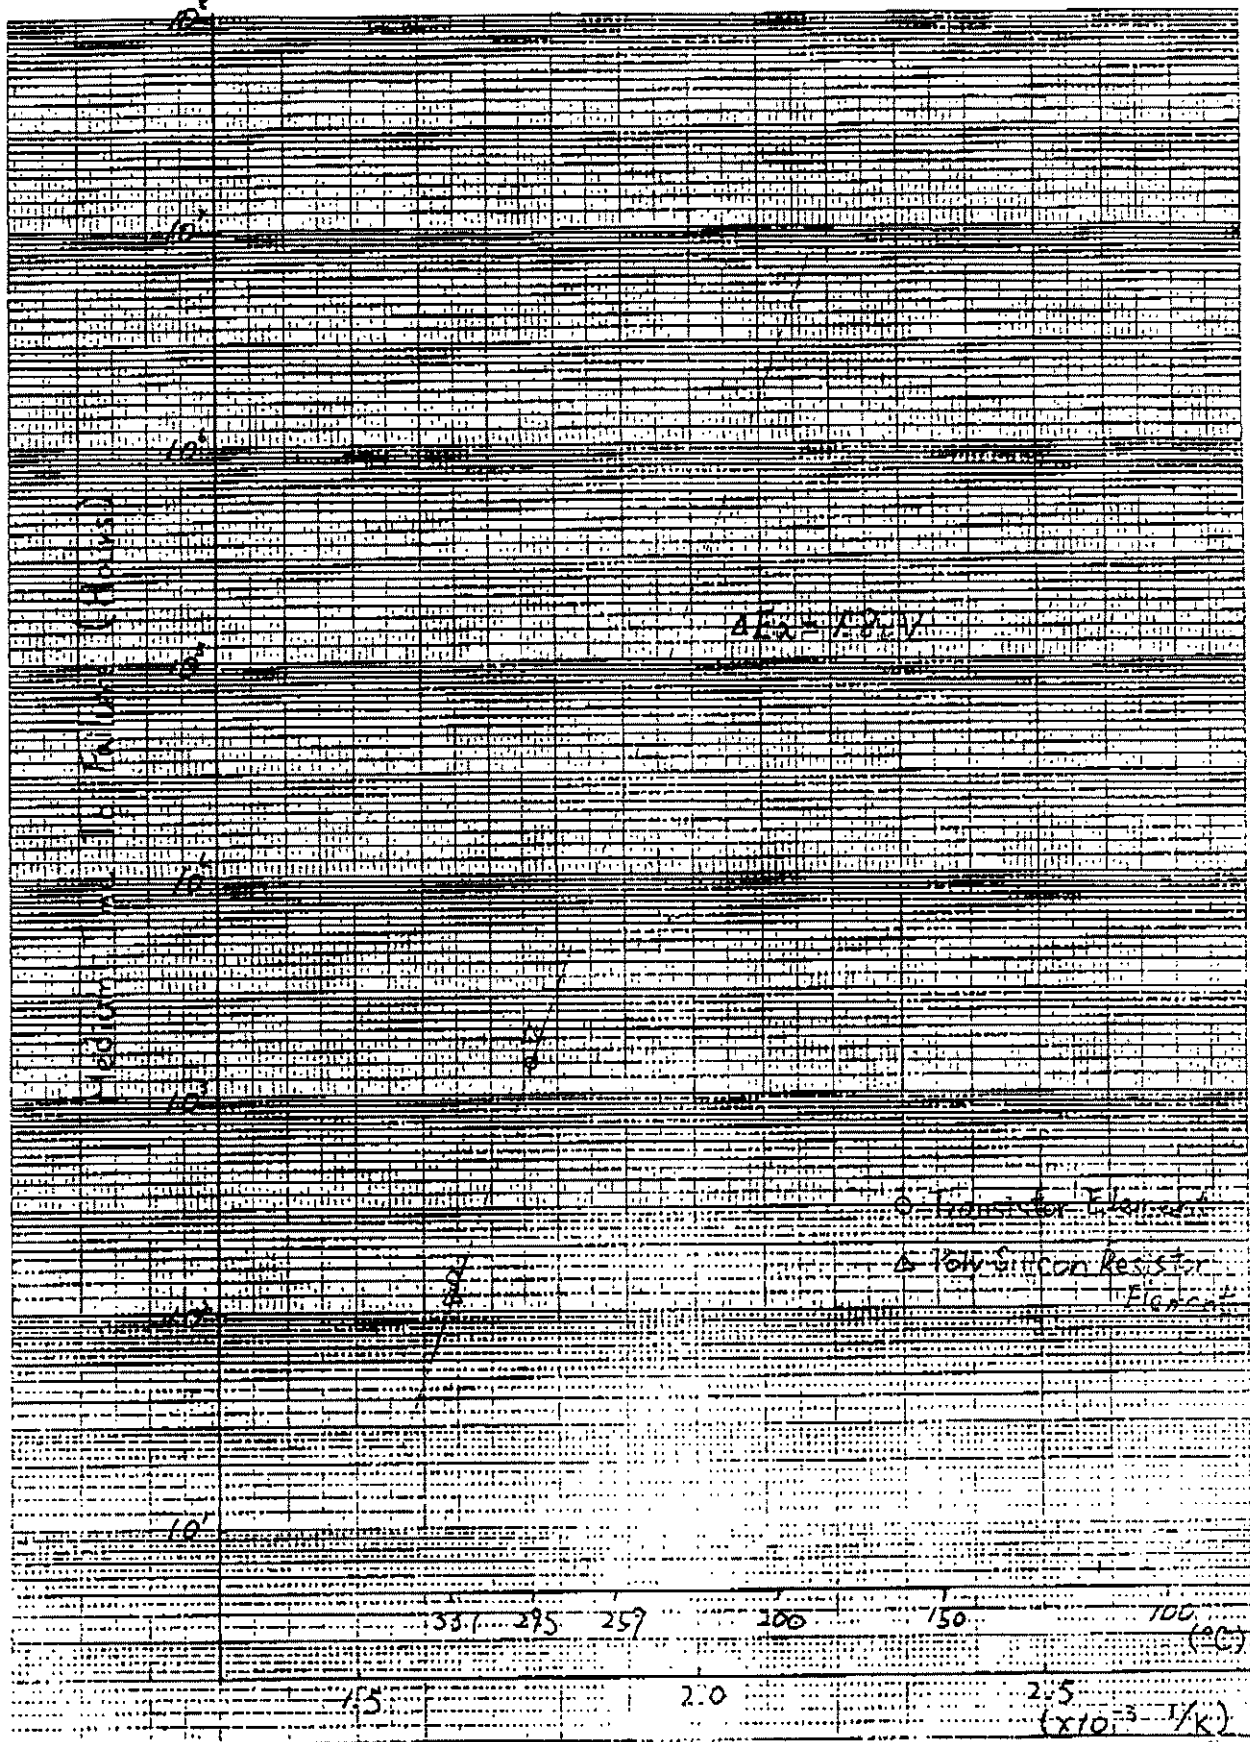 10⁸
10⁷
10⁶
10⁵
10⁴
10³
10²
10¹
Medium Time To Failure (Hours)
ΔEa = 1.8eV
○ Transistor Element
△ Poly Silicon Resistor
Element
331 295 259 200 150 100
(°C)
1.5 2.0 2.5
(×10⁻³ 1/K)